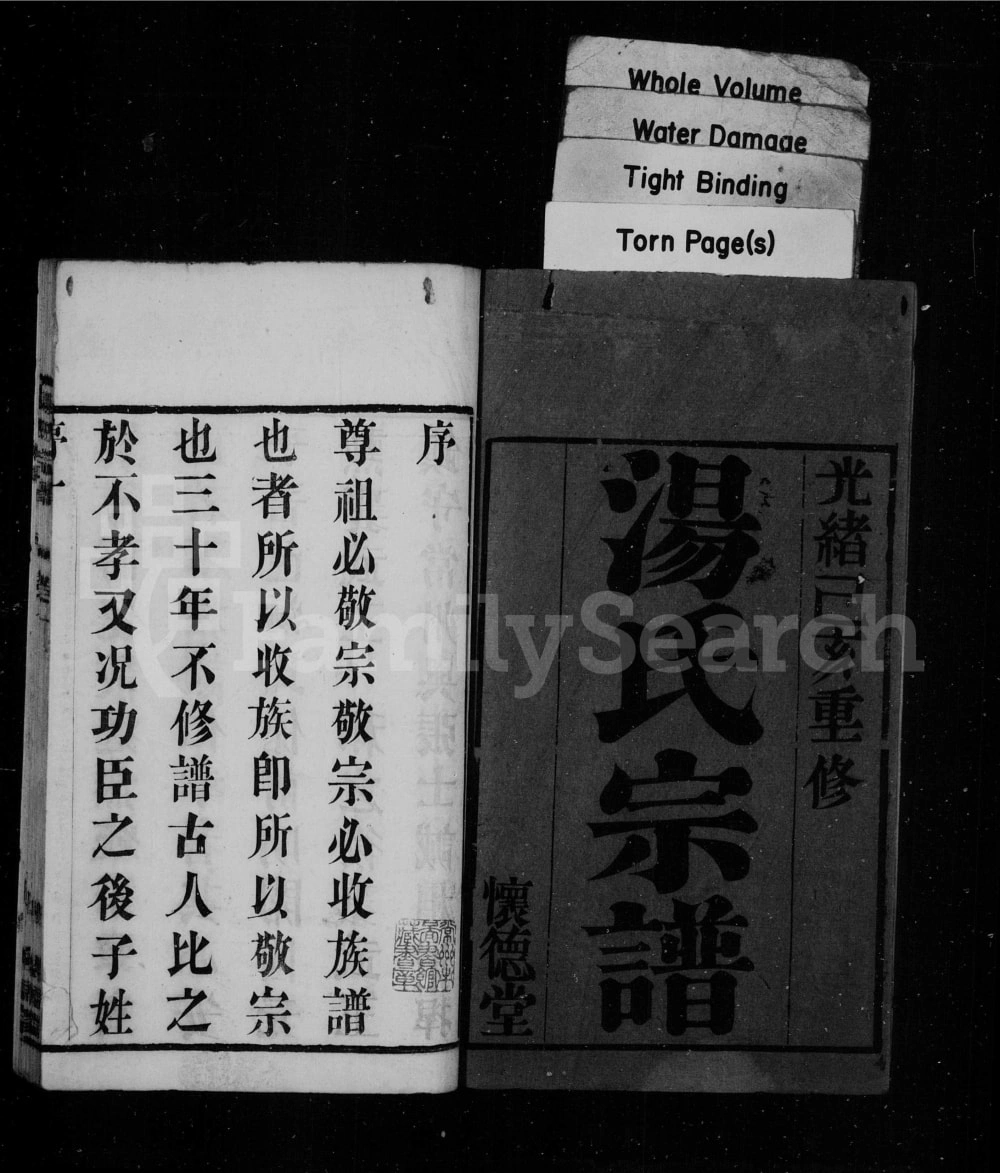 Whole Volume
Water Damage
Tight Binding
Torn Page(s)
光緒己亥重修
湯氏宗譜
懷德堂
序
尊祖必敬宗敬宗必收族譜
也者所以收族卽所以敬宗
也三十年不修譜古人比之
於不孝又况功臣之後子姓
序 一
FamilySearch